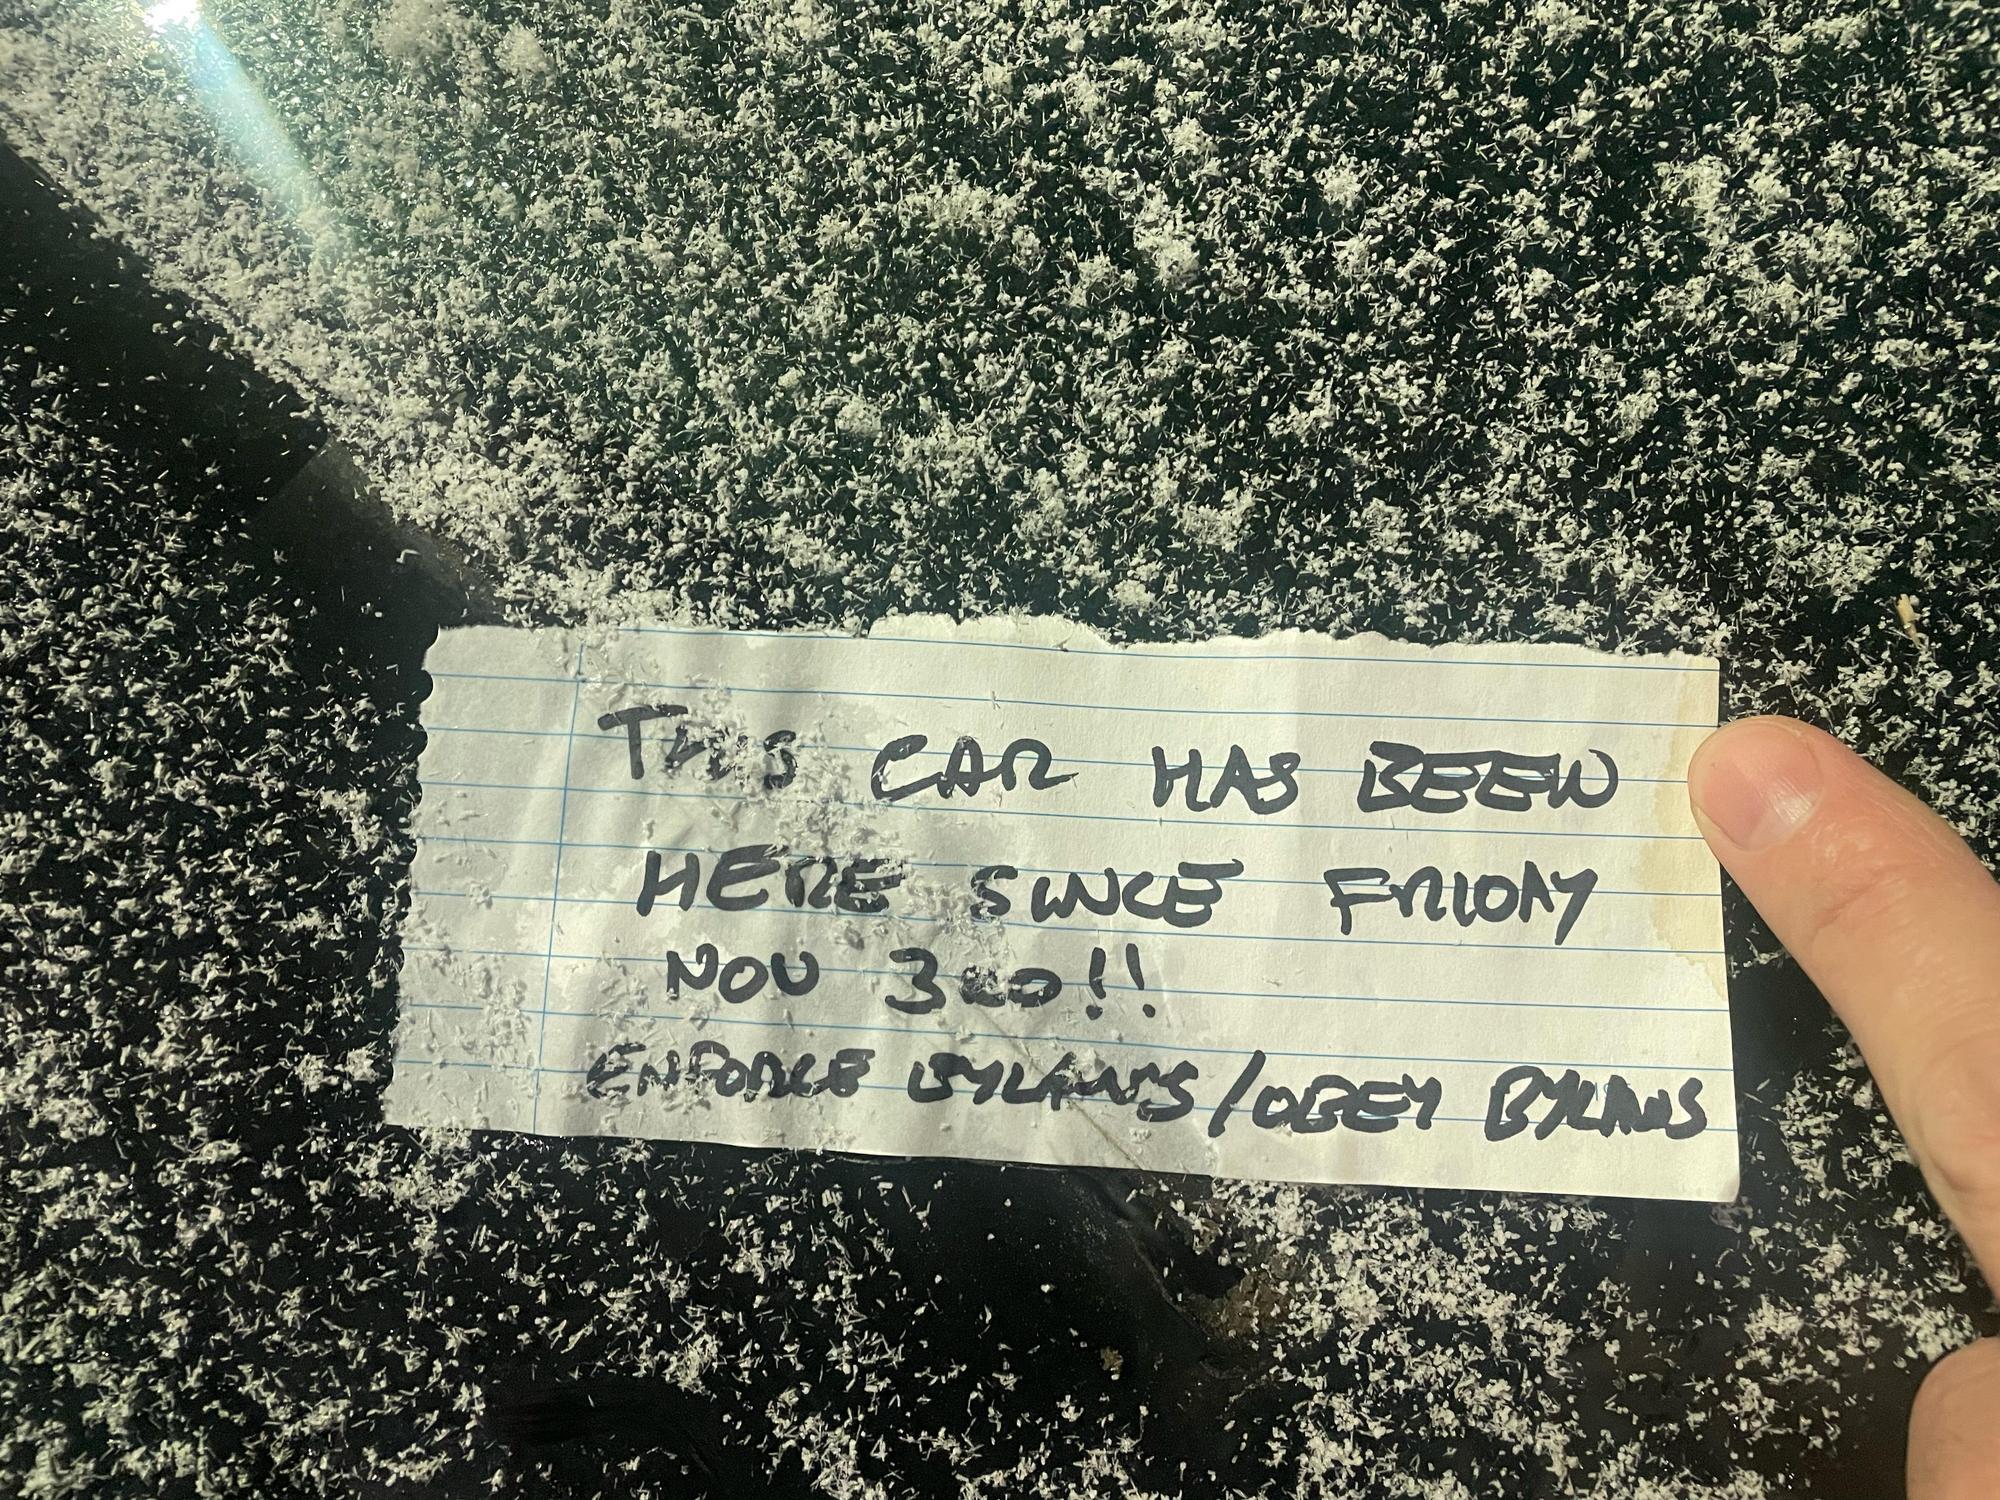 THIS CAR HAS BEEN
HERE SINCE FRIDAY
NOV 3RD!!
ENFORCE BYLAWS/OBEY BYLAWS